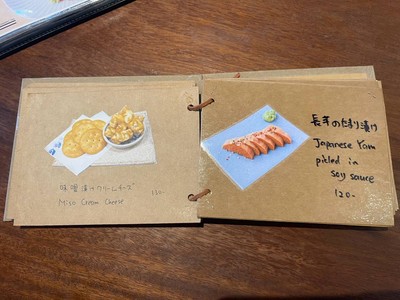 味噌漬けクリームチーズ 130-
Miso Cream Cheese
長芋のたまり漬け
Japanese Yam
pickled in
soy sauce
120-